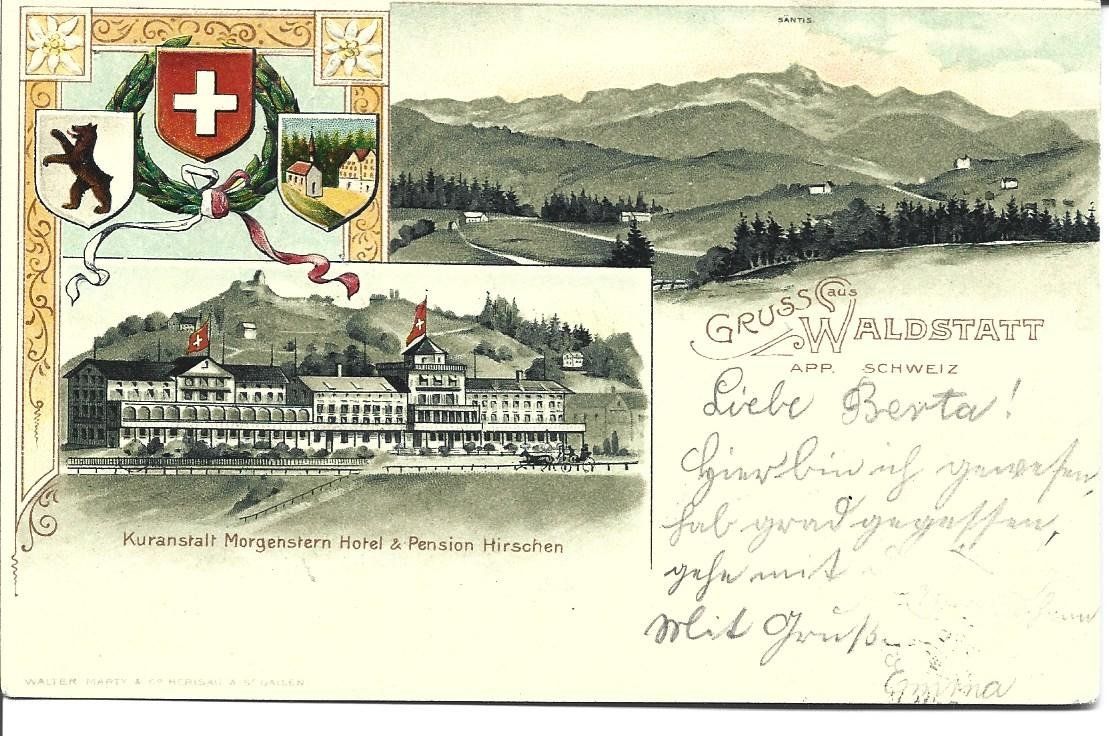 SÄNTIS.
GRUSS aus WALDSTATT
APP. SCHWEIZ
Liebe Berta!
Hier bin ich gewesen,
hab grad gegessen,
gehe mit
Mit Gruß
Emma
Kuranstalt Morgenstern Hotel & Pension Hirschen
WALTER MARTY & Co HERISAU & St GALLEN